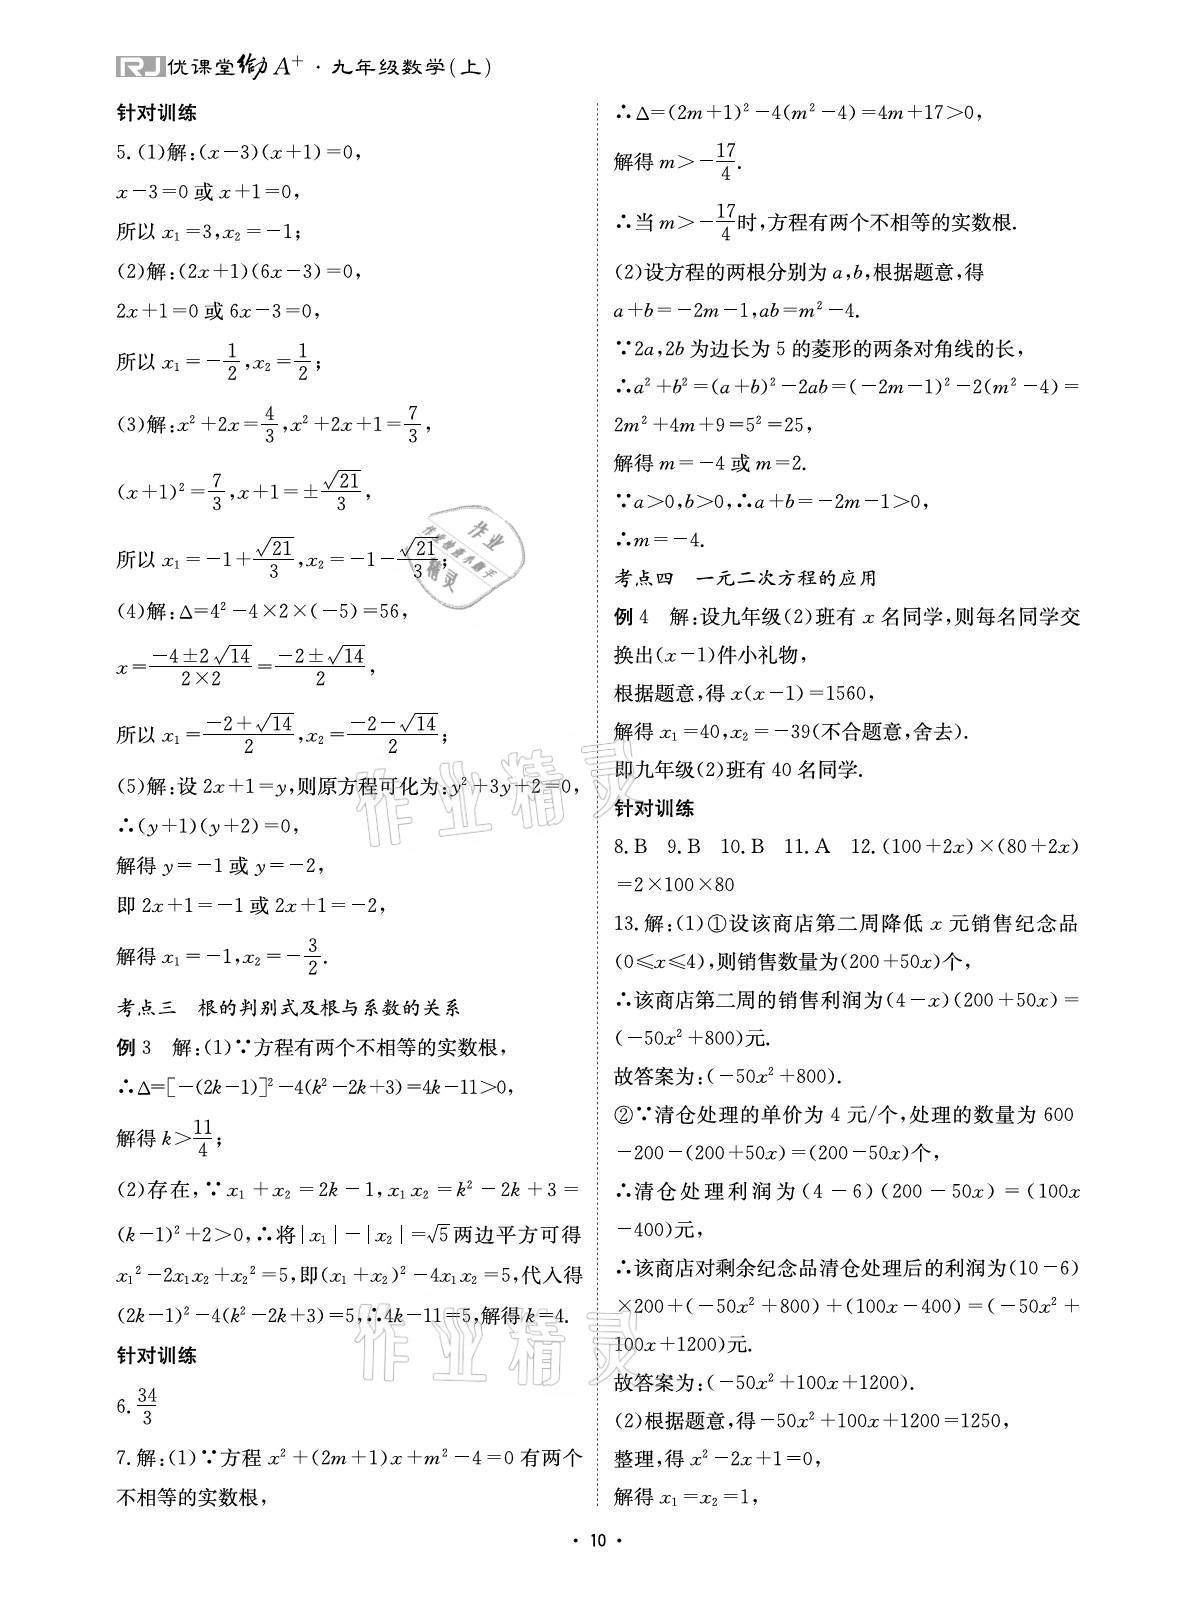 RJ优课堂给力A⁺·九年级数学(上)
针对训练
5.(1)解:(x-3)(x+1)=0,
x-3=0或x+1=0,
所以x₁=3,x₂=-1;
(2)解:(2x+1)(6x-3)=0,
2x+1=0或6x-3=0,
所以x₁=-1/2,x₂=1/2;
(3)解:x²+2x=4/3,x²+2x+1=7/3,
(x+1)²=7/3,x+1=±√21/3,
所以x₁=-1+√21/3,x₂=-1-√21/3;
(4)解:Δ=4²-4×2×(-5)=56,
x=(-4±2√14)/(2×2)=(-2±√14)/2,
所以x₁=(-2+√14)/2,x₂=(-2-√14)/2;
(5)解:设2x+1=y,则原方程可化为:y²+3y+2=0,
∴(y+1)(y+2)=0,
解得y=-1或y=-2,
即2x+1=-1或2x+1=-2,
解得x₁=-1,x₂=-3/2.
考点三 根的判别式及根与系数的关系
例3 解:(1)∵方程有两个不相等的实数根,
∴Δ=[-(2k-1)]²-4(k²-2k+3)=4k-11>0,
解得k>11/4;
(2)存在,∵x₁+x₂=2k-1,x₁x₂=k²-2k+3=
(k-1)²+2>0,∴将|x₁|-|x₂|=√5两边平方可得
x₁²-2x₁x₂+x₂²=5,即(x₁+x₂)²-4x₁x₂=5,代入得
(2k-1)²-4(k²-2k+3)=5,∴4k-11=5,解得k=4.
针对训练
6.34/3
7.解:(1)∵方程x²+(2m+1)x+m²-4=0有两个
不相等的实数根,
∴Δ=(2m+1)²-4(m²-4)=4m+17>0,
解得m>-17/4.
∴当m>-17/4时,方程有两个不相等的实数根.
(2)设方程的两根分别为a,b,根据题意,得
a+b=-2m-1,ab=m²-4.
∵2a,2b为边长为5的菱形的两条对角线的长,
∴a²+b²=(a+b)²-2ab=(-2m-1)²-2(m²-4)=
2m²+4m+9=5²=25,
解得m=-4或m=2.
∵a>0,b>0,∴a+b=-2m-1>0,
∴m=-4.
考点四 一元二次方程的应用
例4 解:设九年级(2)班有x名同学,则每名同学交
换出(x-1)件小礼物,
根据题意,得x(x-1)=1560,
解得x₁=40,x₂=-39(不合题意,舍去).
即九年级(2)班有40名同学.
针对训练
8.B 9.B 10.B 11.A 12.(100+2x)×(80+2x)
=2×100×80
13.解:(1)①设该商店第二周降低x元销售纪念品
(0≤x≤4),则销售数量为(200+50x)个,
∴该商店第二周的销售利润为(4-x)(200+50x)=
(-50x²+800)元.
故答案为:(-50x²+800).
②∵清仓处理的单价为4元/个,处理的数量为600
-200-(200+50x)=(200-50x)个,
∴清仓处理利润为(4-6)(200-50x)=(100x
-400)元,
∴该商店对剩余纪念品清仓处理后的利润为(10-6)
×200+(-50x²+800)+(100x-400)=(-50x²+
100x+1200)元.
故答案为:(-50x²+100x+1200).
(2)根据题意,得-50x²+100x+1200=1250,
整理,得x²-2x+1=0,
解得x₁=x₂=1,
作业
作业快速小助手
精灵
作业精灵
作业精灵
·10·